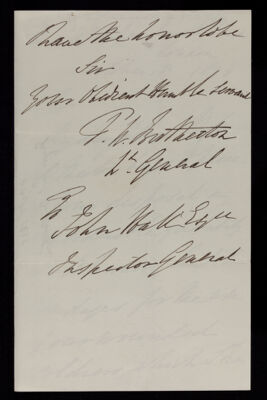 I have the honor to be
Sir
Your Obedient Humble Servant
Lt. General
To
John Hall Esqre
Inspector General